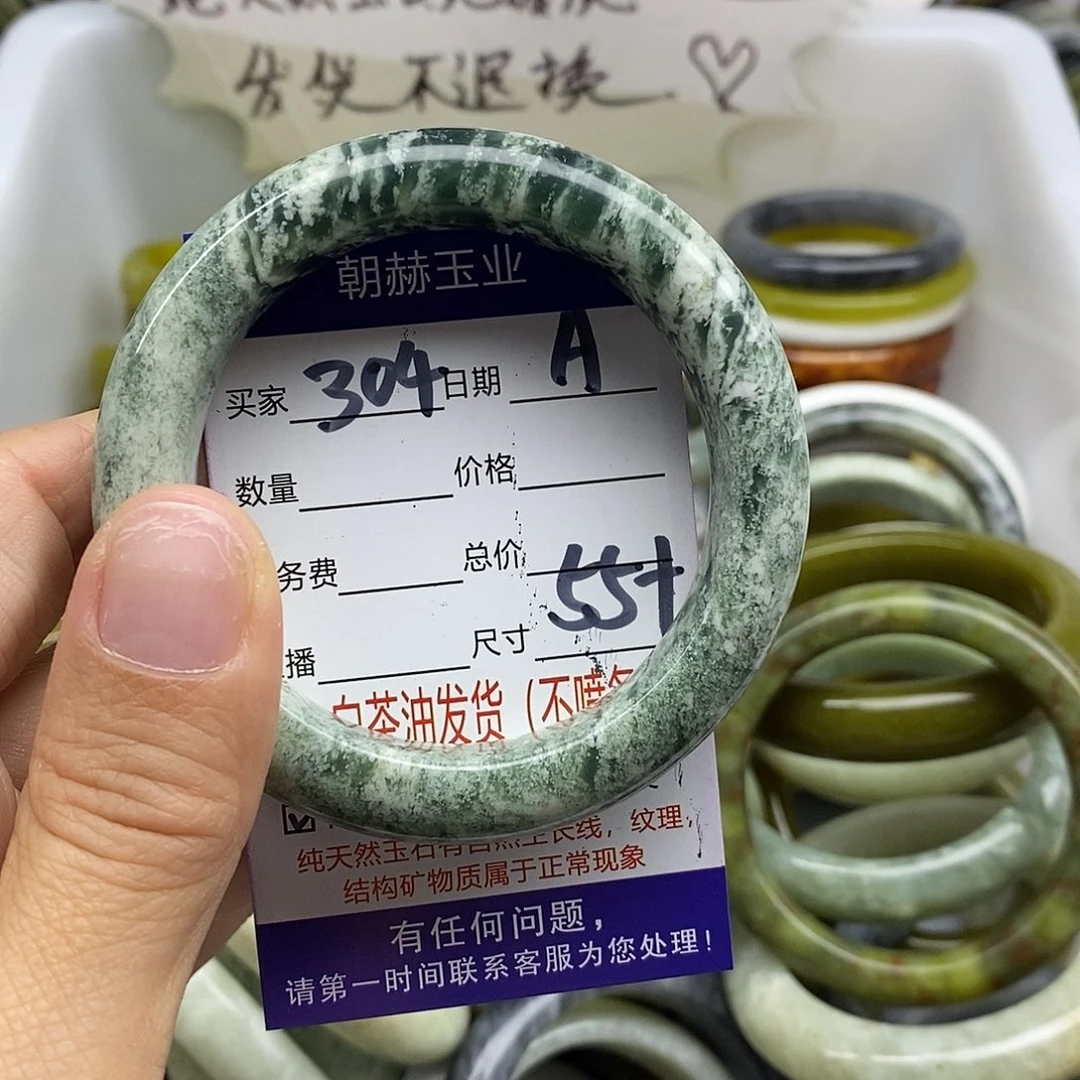 不退换
朝赫玉业
买家 304 日期 A
数量 价格
务费 总价
播 尺寸 55+
白茶油发货（不喷
纯天然玉石有自然生长线，纹理，
结构矿物质属于正常现象
有任何问题，
请第一时间联系客服为您处理！